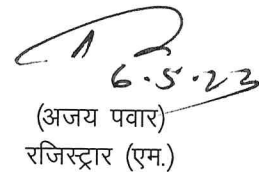 6.5.23
(अजय पवार)
रजिस्ट्रार (एम.)